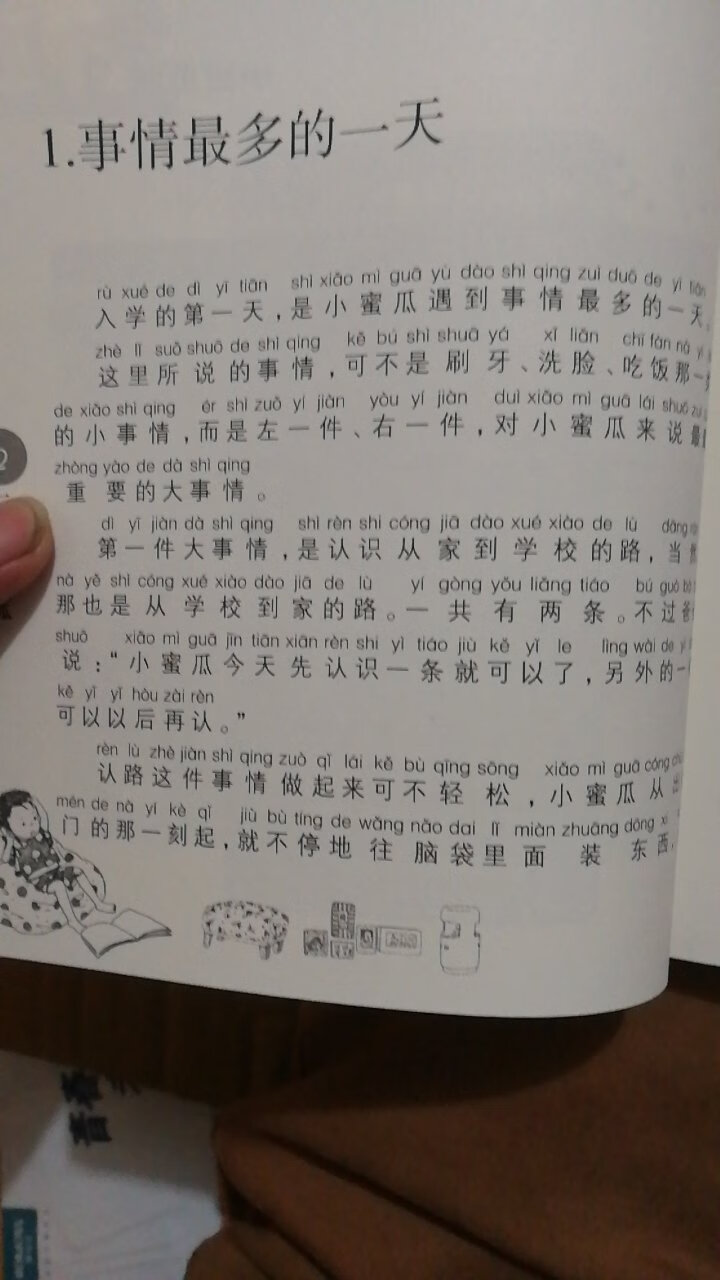 1.事情最多的一天
rù xué de dì yī tiān shì xiǎo mì guā yù dào shì qing zuì duō de yì tiān
入学的第一天，是小蜜瓜遇到事情最多的一天。
zhè lǐ suǒ shuō de shì qing kě bú shì shuā yá xǐ liǎn chī fàn nà
这里所说的事情，可不是刷牙、洗脸、吃饭那一
de xiǎo shì qing ér shì zuǒ yí jiàn yòu yí jiàn duì xiǎo mì guā lái shuō zuì
的小事情，而是左一件、右一件，对小蜜瓜来说最
zhòng yào de dà shì qing
重要的大事情。
dì yī jiàn dà shì qing shì rèn shi cóng jiā dào xué xiào de lù dāng
第一件大事情，是认识从家到学校的路，当然
nà yě shì cóng xué xiào dào jiā de lù yí gòng yǒu liǎng tiáo bú guò
那也是从学校到家的路。一共有两条。不过
shuō xiǎo mì guā jīn tiān xiān rèn shi yì tiáo jiù kě yǐ le lìng wài de
说：“小蜜瓜今天先认识一条就可以了，另外的一
kě yǐ yǐ hòu zài rèn
可以以后再认。”
rèn lù zhè jiàn shì qing zuò qǐ lái kě bù qīng sōng xiǎo mì guā cóng
认路这件事情做起来可不轻松，小蜜瓜从出
mén de nà yí kè qǐ jiù bù tíng de wǎng nǎo dai lǐ miàn zhuāng dōng xi
门的那一刻起，就不停地往脑袋里面装东西